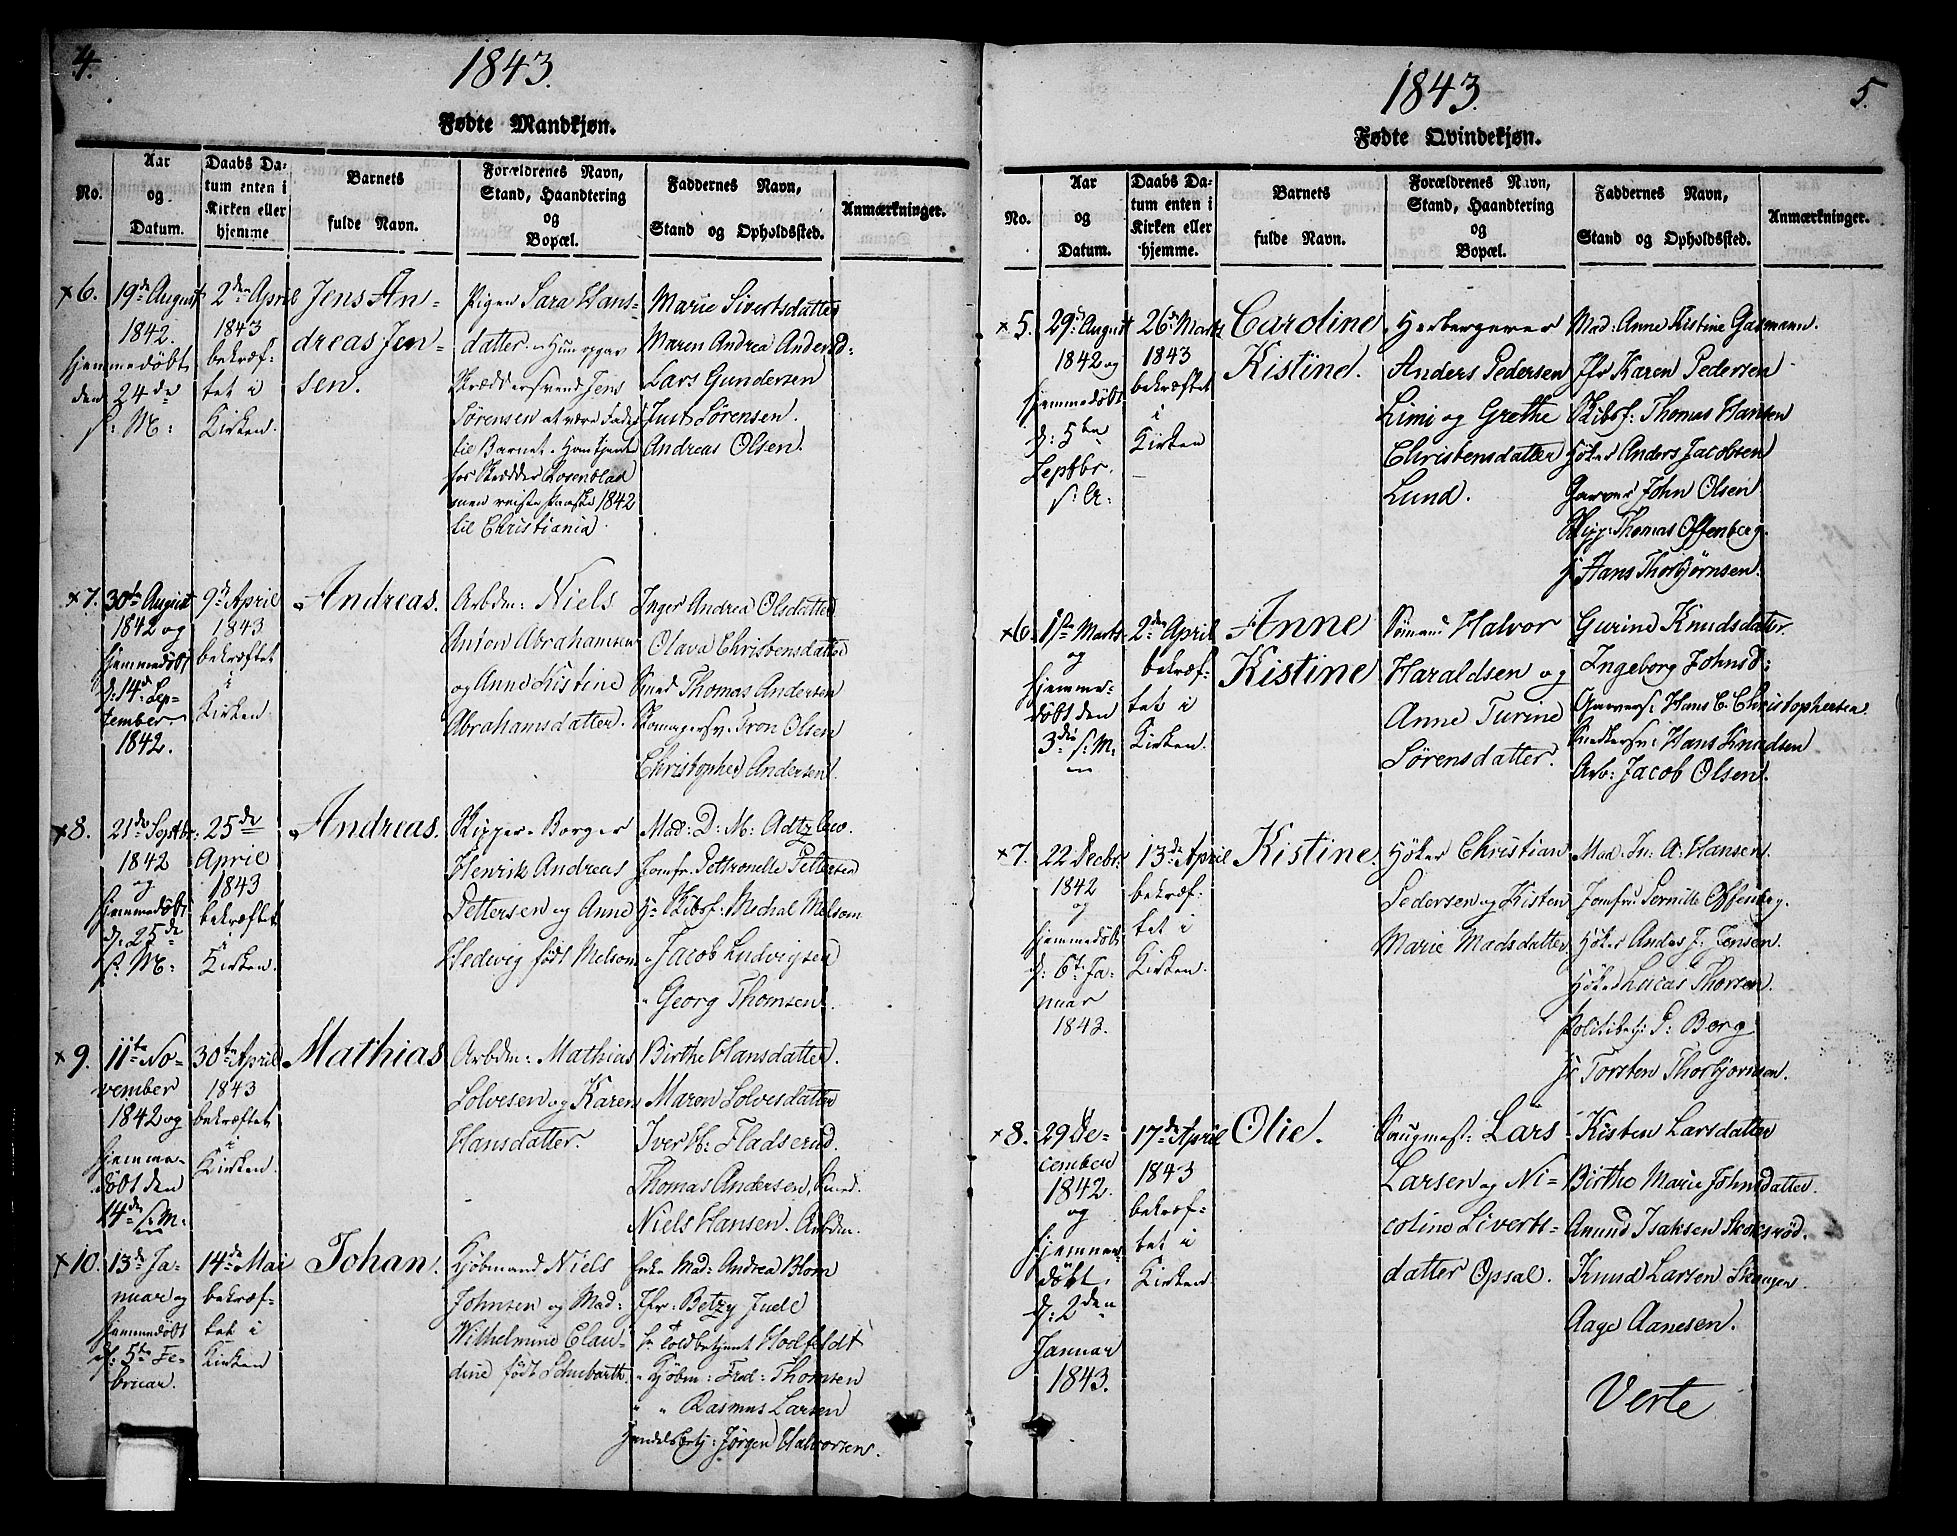 4.
1843.
Fødte Mandkjøn.
No.
Aar
og
Datum.
Daabs Da-
tum enten i
Kirken eller
hjemme
Barnets
fulde Navn.
Forældrenes Navn,
Stand, Haandtering
og
Bopæl.
Faddernes Navn,
Stand og Opholdssted.
Anmærkninger.
6.
19de August
1842.
hjemmedøbt
den 24de
s: M:
2den April
1843
bekræf-
tet i
Kirken.
Jens An-
dreas Jen-
sen.
Pigen Sara Hans-
datter. Hun opgav
Skræddersvend Jens
Sørensen at være Fader
til Barnet. Han tjente
for Skrædder Rosenblad
men reiste Paaske 1842
til Christiania.
Marie Sivertsdatter
Maren Andrea Andersd:
Lars Gundersen
Just Sørensen.
Andreas Olsen.
7.
30te August
1842 og
hjemmedøbt
d: 14d Sep-
tember
1842.
9de April
1843
bekræftet
i
Kirken.
Andreas.
Arbdm: Niels
Anton Abrahamsen
og Anne Kistine
Abrahamsdatter.
Inger Andrea Olsdatter
Olava Christensdatter
Smed Thomas Andersen
Skomagersv: Tron Olsen
Christopher Andersen.
8.
21de Septbr:
1842
og
hjemmedøbt
d: 25de
s: M:
25de
April
1843
bekræftet
i
Kirken.
Andreas.
Skipper Borger
Henrik Andreas
Pettersen og Anne
Hedvig født Melsom
Mad: D: M: Adtzlew.
Jomfr: Pettronelle Pettersen
Hr Skibsf: Michal Melsom
" Jacob Ludvigsen
" Georg Thomsen.
9.
11te No-
vember
1842 og
hjemme-
døbt den
14de s: M:
30te April
1843
bekræftet
i
Kirken.
Mathias
Arbdm: Mathias
Solvesen og Karen
Hansdatter.
Birthe Hansdatter.
Maren Solvesdatter
Iver H: Fladserud.
Thomas Andersen, Smed.
Niels Hansen. Arbdm.
10.
13de Ja-
nuar og
hjemmedøbt
d: 5te Fe-
bruar.
14de Mai
bekræf-
tet i
Kirken
Johan.
Kjøbmand Niels
Johnsen og Mad:
Wilhelmine Clau-
dine født Schubarth.
Enke Mad: Andrea Blom
Jfr: Betzy Juell
Hr Toldbetjent Hodfeldt
" Kjøbm: Fred: Thomsen
" " Rasmus Larsen
Handelsbetj: Jørgen Halvorsen.
5.
1843.
Fødte Qvindekjøn.
No.
Aar
og
Datum.
Daabs Da-
tum enten i
Kirken eller
hjemme.
Barnets
fulde Navn.
Forældrenes Navn,
Stand, Haandtering
og
Bopæl.
Faddernes Navn,
Stand og Opholdssted.
Anmærkninger.
5.
29d August
1842 og
hjemmedøbt
d: 5te
Septbr.
s: A:
26de Marts
1843
bekræftet
i
Kirken
Caroline
Kistine.
Herbergerer
Anders Pedersen
Limi og Grethe
Christensdatter
Lund.
Mad: Anne Kistine Gasmann.
Jfr Karen Pedersen
Skibsf: Thomas Hansen
Høker Anders Jacobsen
Garver John Olsen
Skipp: Thomas Offenberg.
Hans Thorbjørnsen.
6.
1ste Marts
og
hjemme-
døbt den
3die s: M:
2den April
bekræf-
tet i
Kirken.
Anne
Kistine
Sømand Halvor
Haraldsen og
Anne Turine
Sørensdatter.
Gurine Knudsdatter.
Ingeborg Johnsd:
Garvers: Hans C. Christophersen.
Snedkersv: Hans Knudsen
Arb: Jacob Olsen.
7.
22 Decbr.
1842
og
hjemmedøbt
d: 6te Ja-
nuar
1843.
13de April
bekræf-
tet i
Kirken.
Kistine.
Høker Christian
Pedersen og Kisten
Marie Madsdatter.
Mad. In: A: Hansen.
Jomfru Pernille Offenberg.
Høker Andes J: Jensen.
Høker Lucas Thorsen.
Politibetj: P: Berg
Hr Torsten Thorbjørnsen.
8.
29 De-
cember
1842.
og
hjemme-
døbt.
d: 2den
Januar
1843.
17de April
1843
bekræf-
tet i
Kirken.
Olie.
Saugmest: Lars
Larsen og Ni-
coline Siverts-
datter Opsal.
Kisten Larsdatter
Birthe Marie Johnsdatter.
Amund Isaksen Skoksrød.
Knud Larsen Skougen.
Aage Aanesen.
Verte